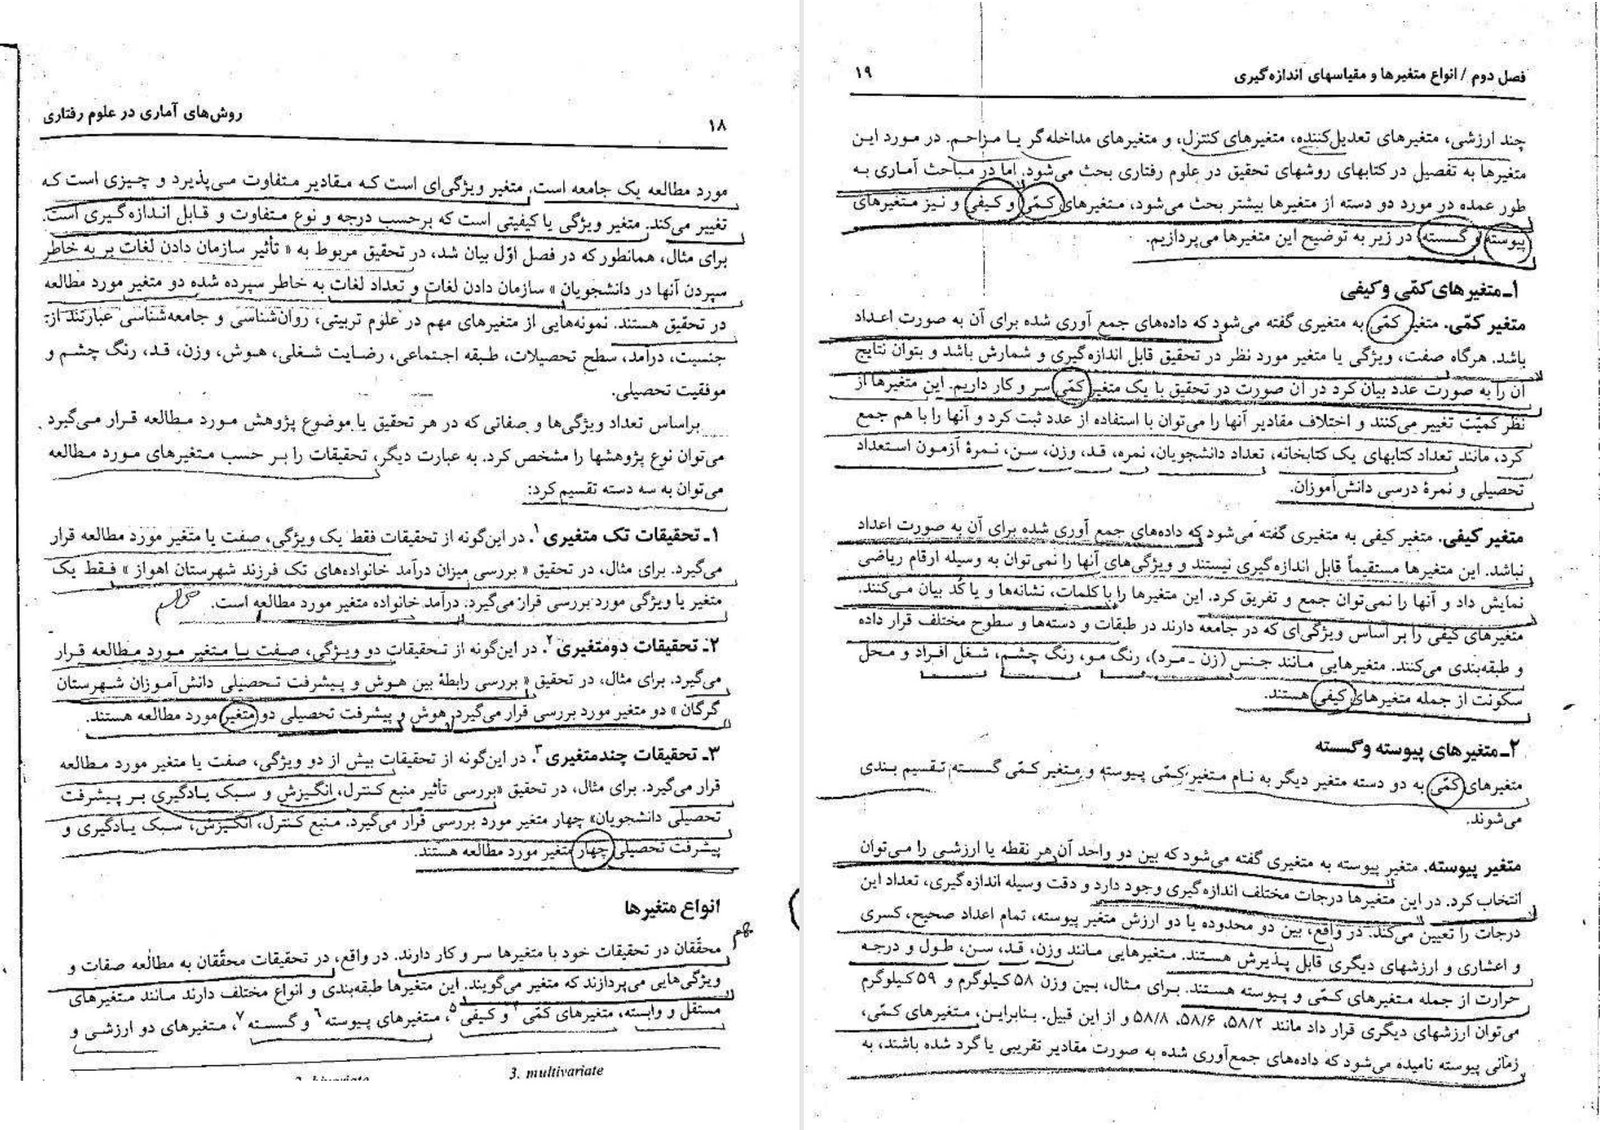 روش‌های آماری در علوم رفتاری
۱۸
مورد مطالعه یک جامعه است. متغیر ویژگی‌ای است که مقادیر متفاوت می‌پذیرد و چیزی است که
تغییر می‌کند. متغیر ویژگی یا کیفیتی است که برحسب درجه و نوع متفاوت و قابل اندازه‌گیری است.
برای مثال، همانطور که در فصل اوّل بیان شد، در تحقیق مربوط به « تأثیر سازمان دادن لغات بر به خاطر
سپردن آنها در دانشجویان » سازمان دادن لغات و تعداد لغات به خاطر سپرده شده دو متغیر مورد مطالعه
در تحقیق هستند. نمونه‌هایی از متغیرهای مهم در علوم تربیتی، روان‌شناسی و جامعه‌شناسی عبارتند از:
جنسیت، درآمد، سطح تحصیلات، طبقه اجتماعی، رضایت شغلی، هوش، وزن، قد، رنگ چشم و
موفقیت تحصیلی.
براساس تعداد ویژگی‌ها و صفاتی که در هر تحقیق یا موضوع پژوهش مورد مطالعه قرار می‌گیرد
می‌توان نوع پژوهشها را مشخص کرد. به عبارت دیگر، تحقیقات را بر حسب متغیرهای مورد مطالعه
می‌توان به سه دسته تقسیم کرد:
۱ـ تحقیقات تک متغیری ۱. در این‌گونه از تحقیقات فقط یک ویژگی، صفت یا متغیر مورد مطالعه قرار
می‌گیرد. برای مثال، در تحقیق « بررسی میزان درآمد خانواده‌های تک فرزند شهرستان اهواز » فقط یک
متغیر یا ویژگی مورد بررسی قرار می‌گیرد. درآمد خانواده متغیر مورد مطالعه است.
۲ـ تحقیقات دومتغیری ۲. در این‌گونه از تحقیقات دو ویژگی، صفت یا متغیر مورد مطالعه قرار
می‌گیرد. برای مثال، در تحقیق « بررسی رابطهٔ بین هوش و پیشرفت تحصیلی دانش‌آموزان شهرستان
گرگان » دو متغیر مورد بررسی قرار می‌گیرد. هوش و پیشرفت تحصیلی دو متغیر مورد مطالعه هستند.
۳ـ تحقیقات چندمتغیری ۳. در این‌گونه از تحقیقات بیش از دو ویژگی، صفت یا متغیر مورد مطالعه
قرار می‌گیرد. برای مثال، در تحقیق «بررسی تأثیر منبع کنترل، انگیزش و سبک یادگیری بر پیشرفت
تحصیلی دانشجویان» چهار متغیر مورد بررسی قرار می‌گیرد. منبع کنترل، انگیزش، سبک یادگیری و
پیشرفت تحصیلی چهار متغیر مورد مطالعه هستند.
انواع متغیرها
مهم
محقّقان در تحقیقات خود با متغیرها سر و کار دارند. در واقع، در تحقیقات محقّقان به مطالعه صفات و
ویژگی‌هایی می‌پردازند که متغیر می‌گویند. این متغیرها طبقه‌بندی و انواع مختلف دارند مانند متغیرهای
مستقل و وابسته، متغیرهای کمّی ۴ و کیفی ۵، متغیرهای پیوسته ۶ و گسسته ۷، متغیرهای دو ارزشی و
3. multivariate
2. bivariate
فصل دوم / انواع متغیرها و مقیاسهای اندازه‌گیری
۱۹
چند ارزشی، متغیرهای تعدیل‌کننده، متغیرهای کنترل، و متغیرهای مداخله‌گر یا مزاحم. در مورد این
متغیرها به تفصیل در کتابهای روشهای تحقیق در علوم رفتاری بحث می‌شود. اما در مباحث آماری به
طور عمده در مورد دو دسته از متغیرها بیشتر بحث می‌شود، متغیرهای کمّی و کیفی و نیز متغیرهای
پیوسته و گسسته. در زیر به توضیح این متغیرها می‌پردازیم.
۱ـ متغیرهای کمّی و کیفی
متغیر کمّی. متغیر کمّی به متغیری گفته می‌شود که داده‌های جمع آوری شده برای آن به صورت اعداد
باشد. هرگاه صفت، ویژگی یا متغیر مورد نظر در تحقیق قابل اندازه‌گیری و شمارش باشد و بتوان نتایج
آن را به صورت عدد بیان کرد در آن صورت در تحقیق با یک متغیر کمّی سر و کار داریم. این متغیرها از
نظر کمیّت تغییر می‌کنند و اختلاف مقادیر آنها را می‌توان با استفاده از عدد ثبت کرد و آنها را با هم جمع
کرد، مانند تعداد کتابهای یک کتابخانه، تعداد دانشجویان، نمره، قد، وزن، سن، نمرهٔ آزمون استعداد
تحصیلی و نمرهٔ درسی دانش‌آموزان.
متغیر کیفی. متغیر کیفی به متغیری گفته می‌شود که داده‌های جمع آوری شده برای آن به صورت اعداد
نباشد. این متغیرها مستقیماً قابل اندازه‌گیری نیستند و ویژگی‌های آنها را نمی‌توان به وسیله ارقام ریاضی
نمایش داد و آنها را نمی‌توان جمع و تفریق کرد. این متغیرها را با کلمات، نشانه‌ها و یا کُد بیان می‌کنند.
متغیرهای کیفی را بر اساس ویژگی‌ای که در جامعه دارند در طبقات و دسته‌ها و سطوح مختلف قرار داده
و طبقه‌بندی می‌کنند. متغیرهایی مانند جنس (زن ـ مرد)، رنگ مو، رنگ چشم، شغل افراد و محل
سکونت از جمله متغیرهای کیفی هستند.
۲ـ متغیرهای پیوسته و گسسته
متغیرهای کمّی به دو دسته متغیر دیگر به نام متغیر کمّی پیوسته و متغیر کمّی گسسته تقسیم بندی
می‌شوند.
متغیر پیوسته. متغیر پیوسته به متغیری گفته می‌شود که بین دو واحد آن هر نقطه یا ارزشی را می‌توان
انتخاب کرد. در این متغیرها درجات مختلف اندازه‌گیری وجود دارد و دقت وسیله اندازه‌گیری، تعداد این
درجات را تعیین می‌کند. در واقع، بین دو محدوده یا دو ارزش متغیر پیوسته، تمام اعداد صحیح، کسری
و اعشاری و ارزشهای دیگری قابل پذیرش هستند. متغیرهایی مانند وزن، قد، سن، طول و درجه
حرارت از جمله متغیرهای کمّی و پیوسته هستند. برای مثال، بین وزن ۵۸ کیلوگرم و ۵۹ کیلوگرم
می‌توان ارزشهای دیگری قرار داد مانند ۵۸/۲، ۵۸/۶، ۵۸/۸ و از این قبیل. بنابراین، متغیرهای کمّی،
زمانی پیوسته نامیده می‌شود که داده‌های جمع‌آوری شده به صورت مقادیر تقریبی یا گرد شده باشند، به